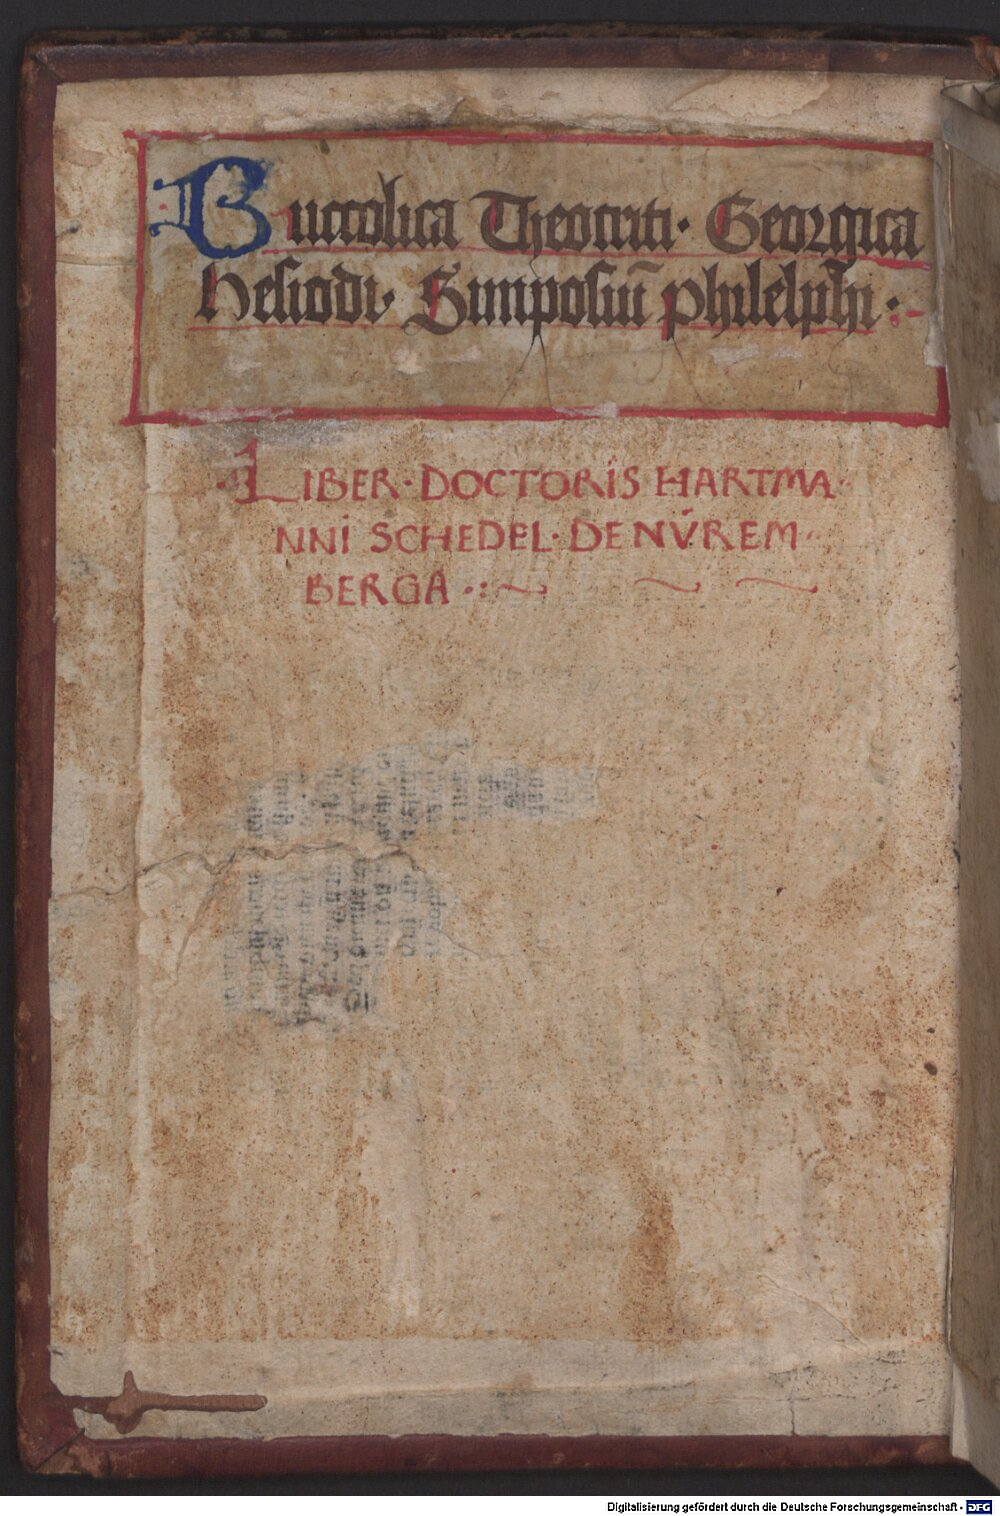 Buccolica Theocriti· Georgica
Hesiodi· Simposiū philelphi·
LIBER·DOCTORIS HARTMA·
NNI SCHEDEL·DE NVREM·
BERGA·:~
Digitalisierung gefördert durch die Deutsche Forschungsgemeinschaft - DFG